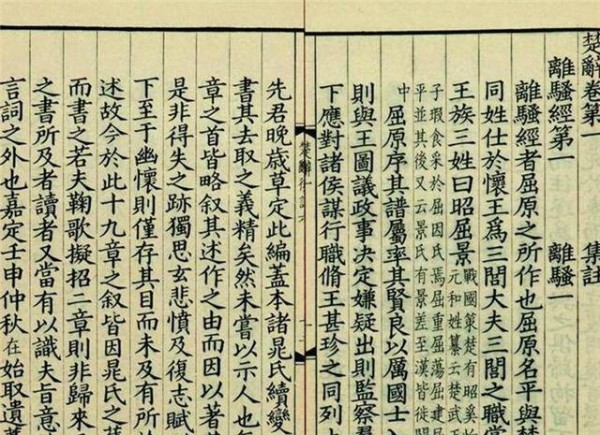 楚辭卷第一 集註
離騷經第一 離騷一
離騷經者屈原之所作也屈原名平與楚
同姓仕於懷王爲三閭大夫三閭之職掌
王族三姓曰昭屈景
戰國策楚有昭奚
元和姓纂云楚武王
子瑕食采於屈因氏焉屈重屈蕩屈建屈
平並其後又云景氏有景差至漢皆徙關
中
屈原序其譜屬率其賢良以厲國士入
則與王圖議政事決定嫌疑出則監察羣
下應對諸侯謀行職脩王甚珍之同列上
先君晚歳草定此編蓋本諸晁氏續變
書其去取之義精矣然未嘗以示人也
章之首皆略叙其述作之由而因以著其
是非得失之跡獨思玄悲憤及復志賦
下至于幽懷則僅存其目而未及有所
述故今於此十九章之叙皆因晁氏之
而書之若夫鞠歌擬招二章則非歸來
之書所及者讀者又當有以識夫旨意
言詞之外也嘉定壬申仲秋在始取遺